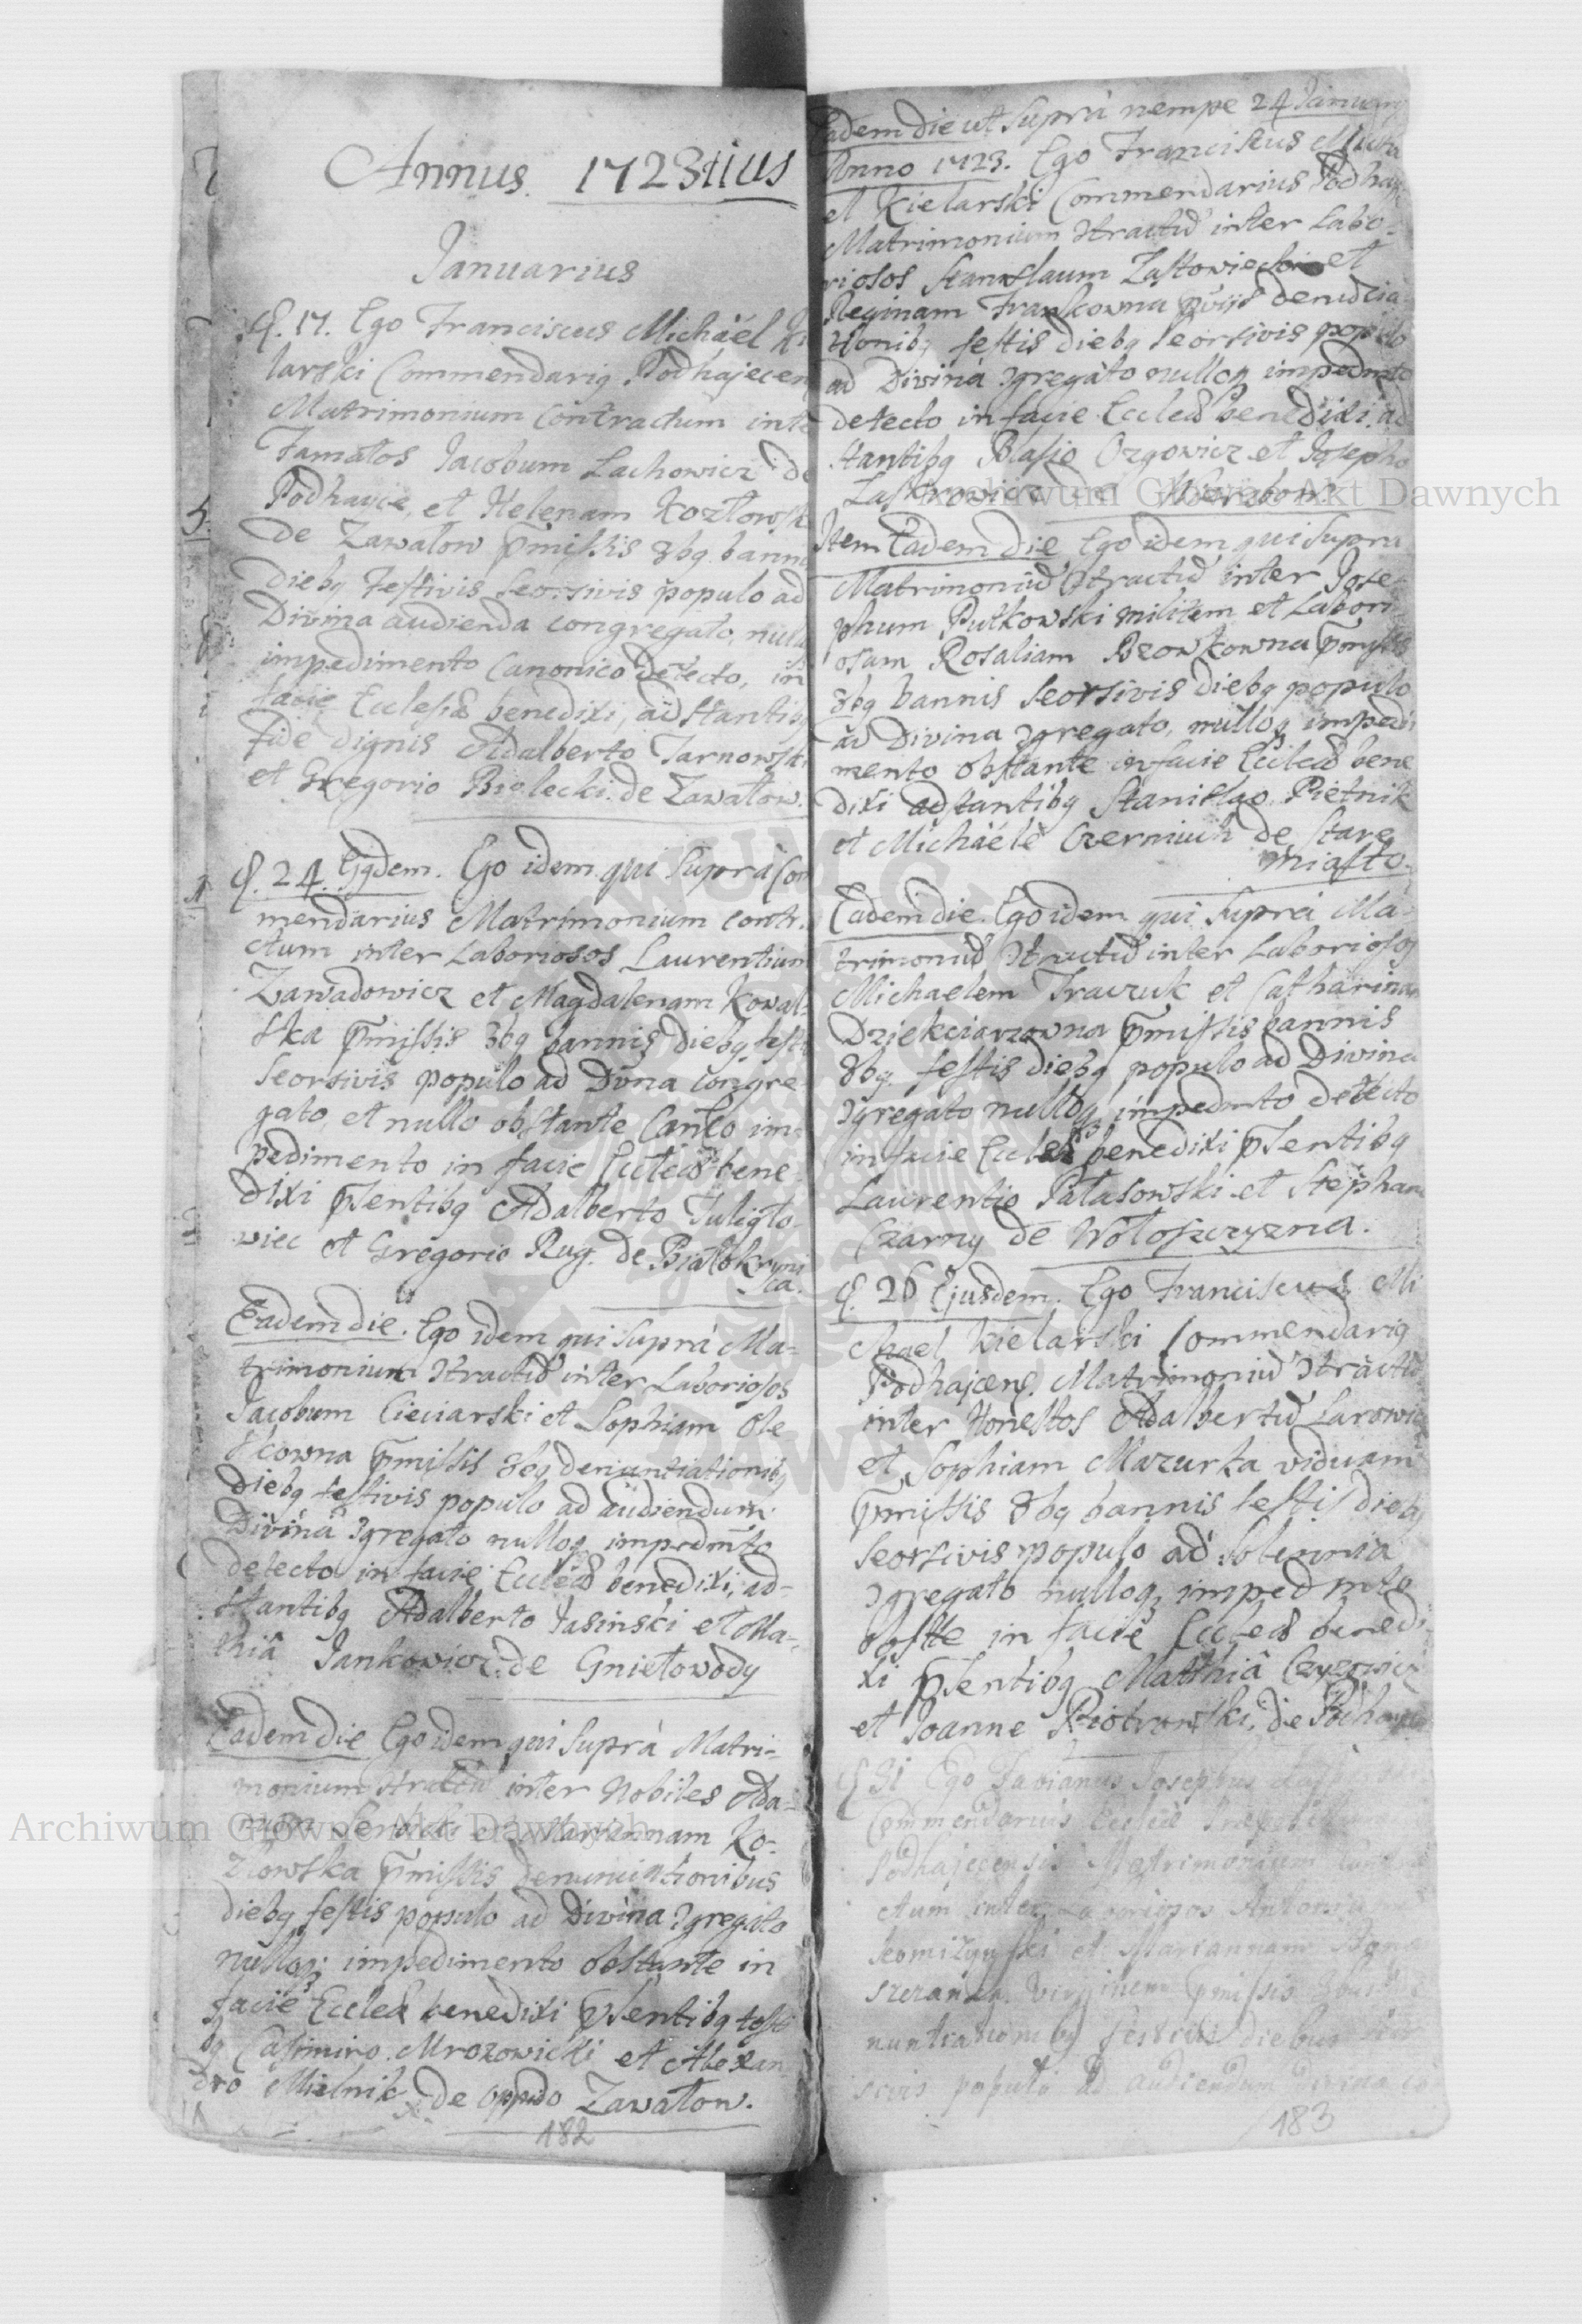 Annus. 1723tius
Januarius
d. 17. Ego Franciscus Michaël Ki
larski Commendariq Podhajecen
Matrimonium Contractum inte
Famatos Jacobum Lachowicz de
Podhayce, et Helenam Kozłowsk
de Zawałow p̄missis 3bq banni
diebq festivis seorsivis populo ad
Divina audienda congregato, nullo
impedimento Canonico detecto, in
facie Ecclesiæ benedixi, adstantibq
fide dignis Adalberto Tarnowski
et Gregorio Bielecki de Zawałow.
d. 24. Ejqdem. Ego idem qui Suprà Com
mendarius Matrimonium contra
ctum inter Laboriosos Laurentium
Zawadowicz et Magdalenam Kowal-
ska p̄missis 3bq bannis diebq festi
seorsivis populo ad Dīvna congre-
gato, et nullo obstante Canco im-
pedimento in facie Eccleæ bene-
dixi p̄sentibq Adalberto Tuligło-
wiec et Gregorio Rug. de Białokryni
ca.
Eadem die. Ego idem qui Suprà Ma-
trimonium Ↄtractū inter Laboriosos
Jacobum Cieciarski et Sophiam Ole
skowna p̄missis 3bq denuntiationibq
diebq festivis populo ad audiendum
Divinâ Ↄgregato nulloq impedmto
detecto in facie Eccleæ benedixi, ad-
stantibq Adalberto Jasinski et Ma-
thiâ Jankowicz de Gniełowody
Eadem die Ego idem qui Suprà Matri-
monium Ↄtractū inter Nobiles Ada-
mum et Mariannam Ko-
złowska p̄missis Denunciationibus
diebq festis populo ad Divina Ↄgregato
nulloq impedimento obstante in
facie Eccleæ benedixi p̄sentibq testi
bq Casimiro Mrozowicki et Alexan
dro Mielnik de oppido Zawałow.
182
Eadem die ut Suprà nempe 24 Januarij
Anno 1723. Ego Franciscus Micha
el Kielarski Commendarius Podhaj
Matrimonium Ↄtractū inter Labo-
riosos Stanislaum Zastowiecki et
Reginam Frankowna p̄vijs denūcia
tionibq festis diebq seorsivis populo
ad Divina Ↄgregato nulloq impedmto
detecto in facie Eccleæ benedixi ad
stantibq Blasio Ozgowicz et Josepho
Laskowicz de
Item Eadem die Ego idem qui Supra
Matrimoniū Ↄtractū inter Jose-
phum Putkowski militem et Labori
osam Rosaliam Bzowkowna p̄missis
3bq bannis seorsivis diebq populo
ad Divina Ↄgregato, nulloq impedi
mento obstante in facie Eccleæ bene
dixi adstantibq Stanislao Piętnik
et Michaële Czerniuch de Stare
miasto.
Eadem die. Ego idem qui Suprà Ma-
trimoniū Ↄtractū inter Laboriosos
Michaelem Trawzuk et Catharinam
Dziekciarzowna p̄missis bannis
3bq. festis diebq populo ad Divina
Ↄgregato nulloq impedmto detecto
in facie Eccleæ benedixi p̄sentibq
Laurentio Pałasowski et Stephano
Czarny de Wołoszczyzna.
d. 26 Ejusdem. Ego Franciscus Mi
chael Kielarski Commendariq
Podhajcenq. Matrimoniū Ↄtractū
inter Honestos Adalbertū Larowicz
et Sophiam Mazurka viduam
p̄missis 3bq bannis festis diebq
seorsivis populo ad Solennia
Ↄgregato nulloq impedmto
obstte in facie Eccleæ benedi-
xi p̄sentibq Matthiâ Czyzowicz
et Joanne Piotrowski, de Podhayce
d 31 Ego Fabianus Josephus
Commendarius Eccleiæ
Podhajecensis Matrimonium
ctum inter Laboriosos Antonium
et Mariannam
virginem p̄missis 3bus de
nuntiationibq festivis diebus seor
sivis populo ad audiendum Divina co
183
Archiwum Główne Akt Dawnych
Archiwum Główne Akt Dawnych